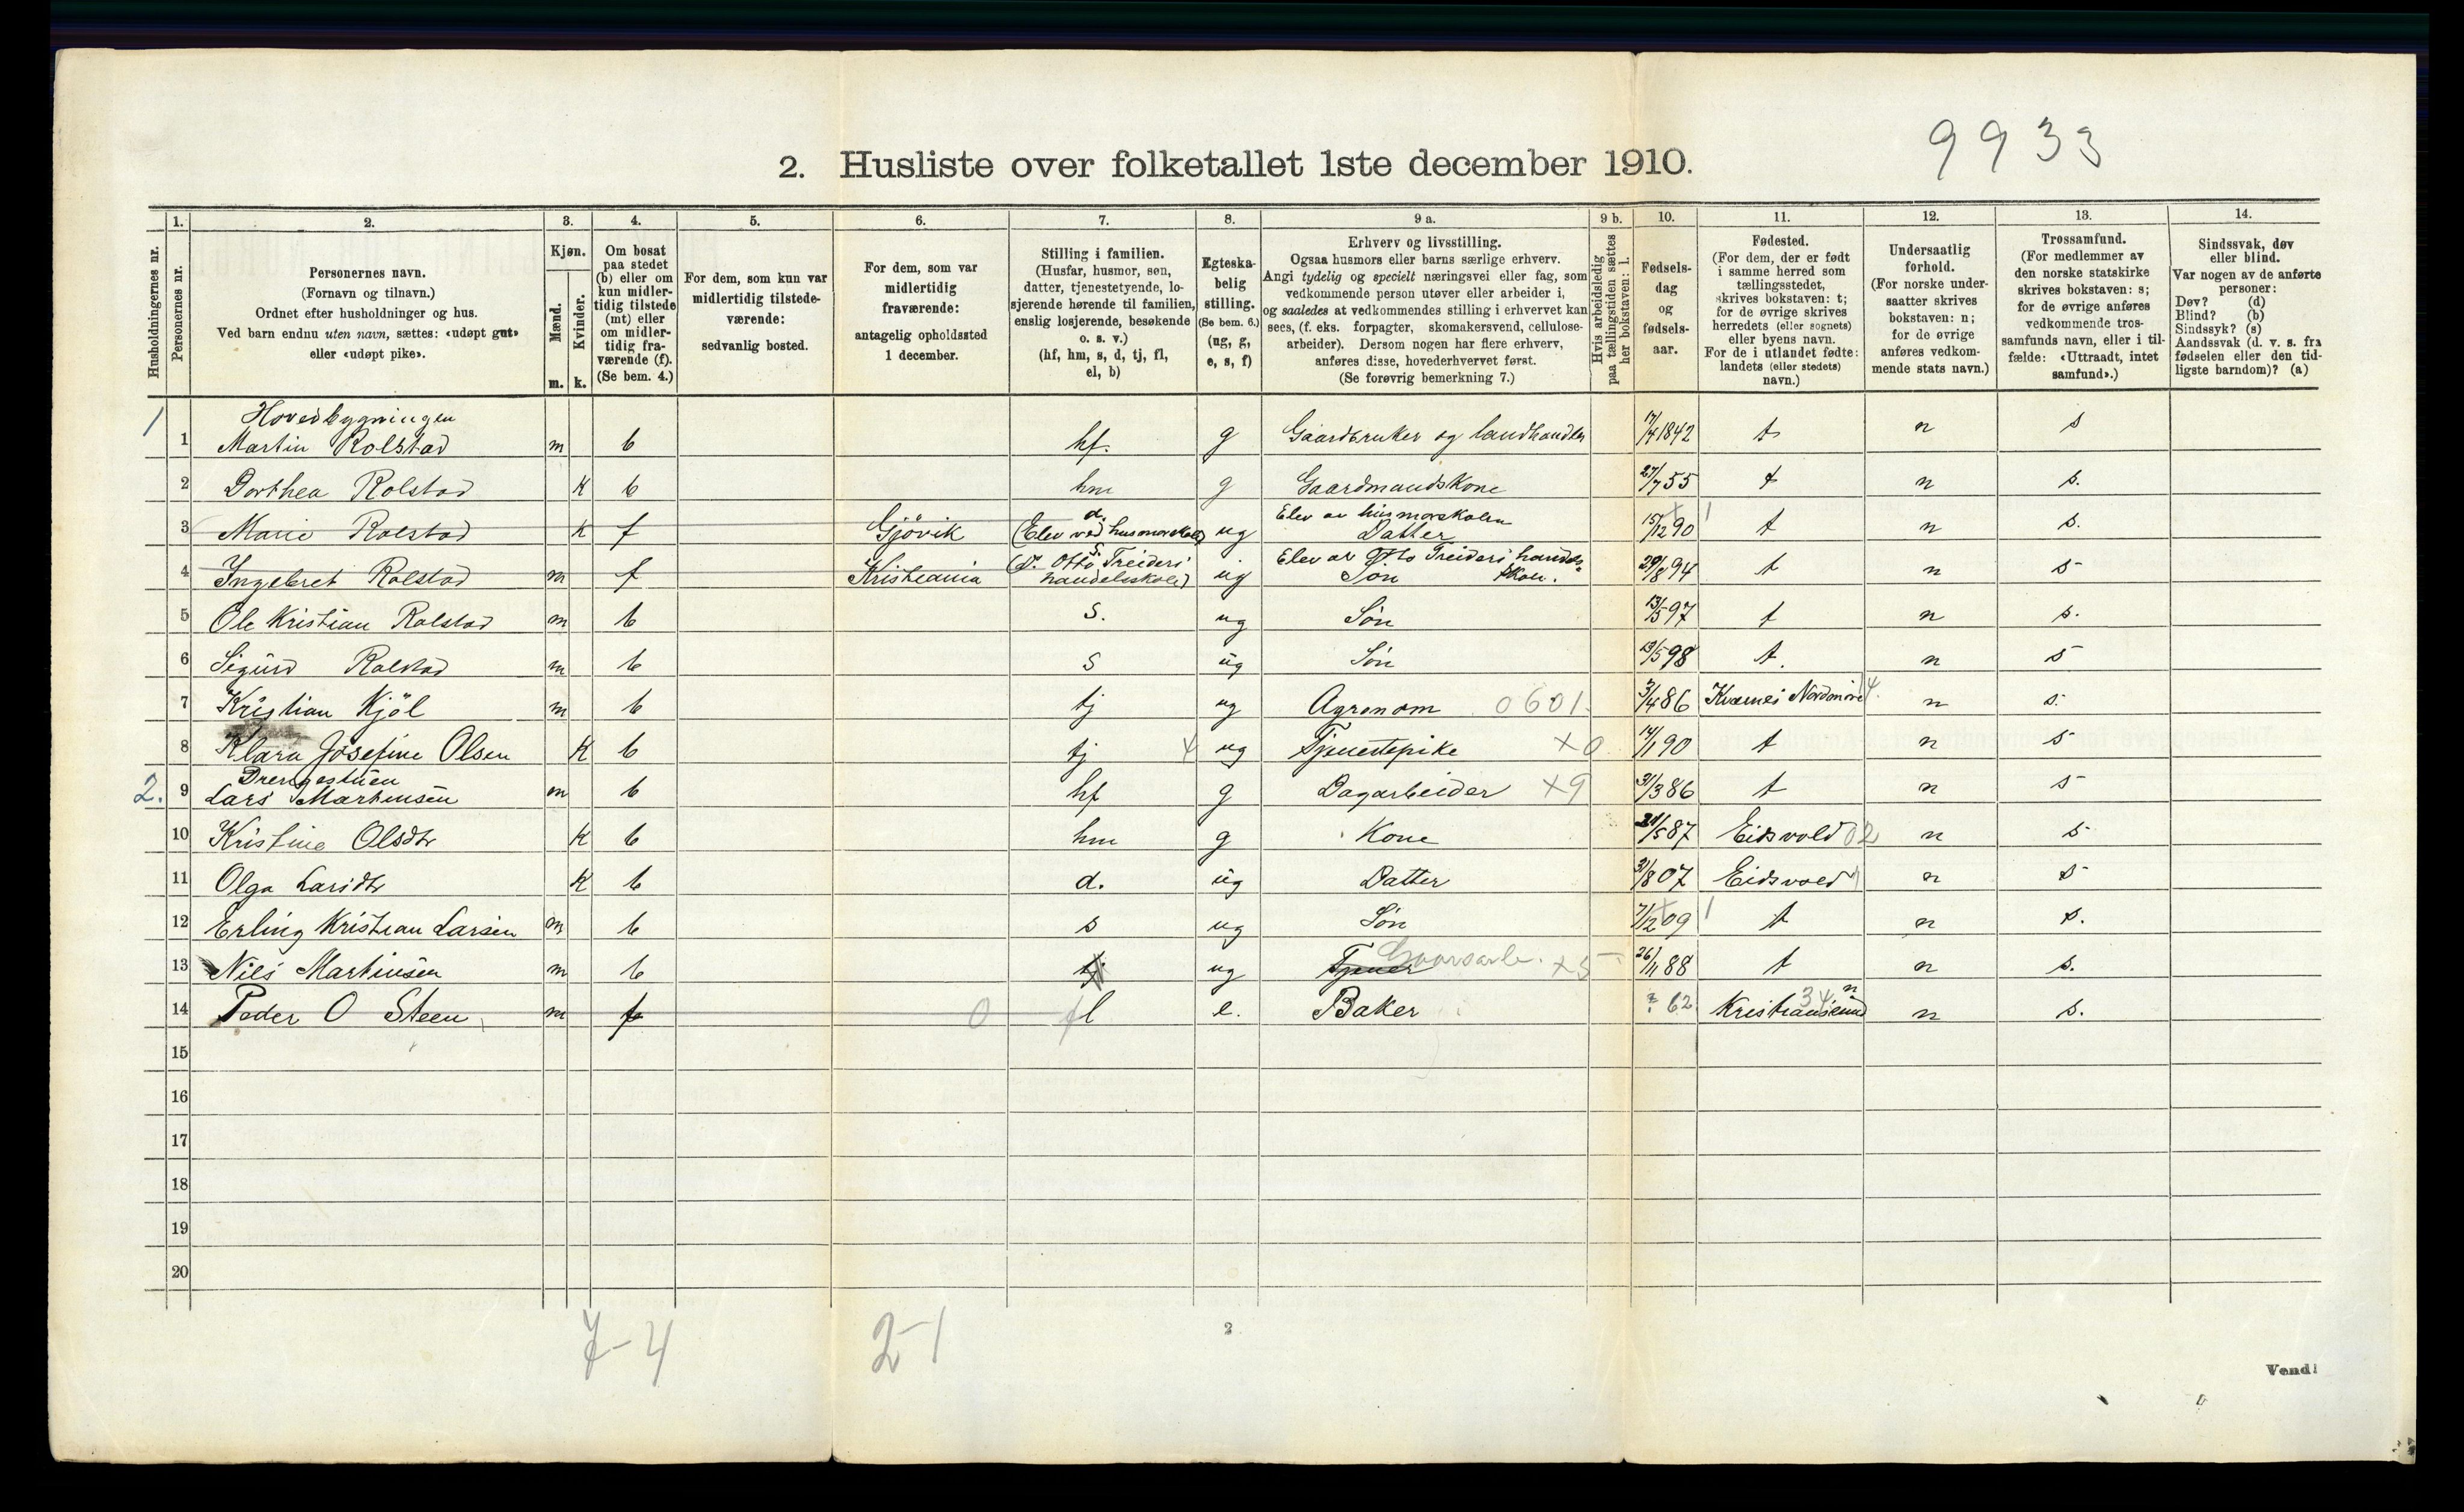 9933
2. Husliste over folketallet 1ste december 1910.
Husholdningernes nr.
1. Personernes nr.
2. Personernes navn.
(Fornavn og tilnavn.)
Ordnet efter husholdninger og hus.
Ved barn endnu uten navn, sættes: «udøpt gut»
eller «udøpt pike».
3. Kjøn.
Mænd. m.
Kvinder. k.
4. Om bosat
paa stedet
(b) eller om
kun midler-
tidig tilstede
(mt) eller
om midler-
tidig fra-
værende (f).
(Se bem. 4.)
5. For dem, som kun var
midlertidig tilstede-
værende:
sedvanlig bosted.
6. For dem, som var
midlertidig
fraværende:
antagelig opholdssted
1 december.
7. Stilling i familien.
(Husfar, husmor, søn,
datter, tjenestetyende, lo-
sjerende hørende til familien,
enslig losjerende, besøkende
o. s. v.)
(hf, hm, s, d, tj, fl,
el, b)
8. Egteska-
belig
stilling.
(Se bem. 6.)
(ug, g,
e, s, f)
9 a. Erhverv og livsstilling.
Ogsaa husmors eller barns særlige erhverv.
Angi tydelig og specielt næringsvei eller fag, som
vedkommende person utøver eller arbeider i,
og saaledes at vedkommendes stilling i erhvervet kan
sees, (f. eks. forpagter, skomakersvend, cellulose-
arbeider). Dersom nogen har flere erhverv,
anføres disse, hovederhvervet først.
(Se forøvrig bemerkning 7.)
9 b. Hvis arbeidsledig
paa tællingstiden sættes
her bokstaven: l.
10. Fødsels-
dag
og
fødsels-
aar.
11. Fødested.
(For dem, der er født
i samme herred som
tællingsstedet,
skrives bokstaven: t;
for de øvrige skrives
herredets (eller sognets)
eller byens navn.
For de i utlandet fødte:
landets (eller stedets)
navn.)
12. Undersaatlig
forhold.
(For norske under-
saatter skrives
bokstaven: n;
for de øvrige
anføres vedkom-
mende stats navn.)
13. Trossamfund.
(For medlemmer av
den norske statskirke
skrives bokstaven: s;
for de øvrige anføres
vedkommende tros-
samfunds navn, eller i til-
fælde: «Uttraadt, intet
samfund».)
14. Sindssvak, døv
eller blind.
Var nogen av de anførte
personer:
Døv? (d)
Blind? (b)
Sindssyk? (s)
Aandssvak (d. v. s. fra
fødselen eller den tid-
ligste barndom)? (a)
Hovedbygningen
1 1 Martin Rolstad m b hf. g Gaardbruker og landhandler 17/4 1842 t n s
2 Dorthea Rolstad k b hm g Gaardmandskone 27/7 55 t n s.
3 Marie Rolstad k f Gjövik d. (Elev ved husmorskole) ug Elev av husmorskolen Datter 15/12 90 1 t n s.
4 Ingebret Rolstad m f Kristiania s. (d. Otto Treiders handelsskole) ug Elev av Otto Treiders handels= skole. Søn 29/8 94 t n s
5 Ole Kristian Rolstad m b s. ug Søn 13/5 97 t n s.
6 Sigurd Rolstad m b s ug Søn 13/5 98 t. n s
7 Kristian Kjöl m b tj ug Agronom 0601. 3/4 86 Kværnes Nordmøre n s.
8 Klara Josefine Olsen k b tj 4 ug Tjenestepike x0 14/1 90 t n s
Drengestuen
2. 9 Lars Martinsen m b hf g Dagarbeider x9 31/3 86 t n s
10 Kristine Olsdtr k b hm g Kone 21/5 87 Eidsvold 02 n s
11 Olga Larsdtr k b d. ug Datter 31/8 07 Eidsvold n s
12 Erling Kristian Larsen m b s ug Søn 7/12 09 1 t n s.
13 Nils Martinsen m b tj ug Tjener Gaardsarb. x5 26/11 88 t n s.
14 Peder O Steen m f 0 fl e. Baker ? 62 Kristiansund n 34 n s.
15
16
17
18
19
20
7-4 2-1
2
Vend!